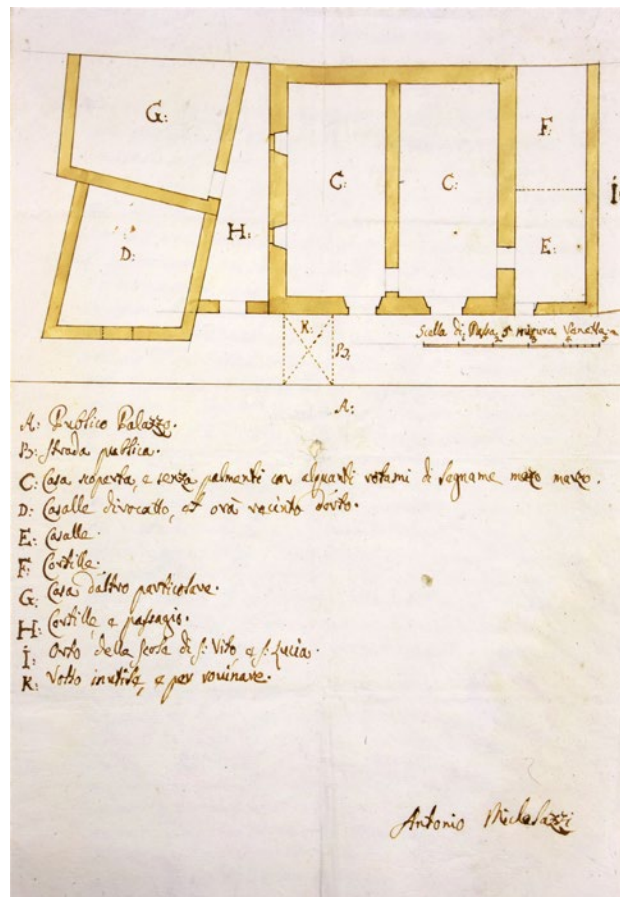 G:
C:
C:
F:
H:
D:
E:
K:
B:
Scalla di Passa 5 misura Veneta
A:
A: Publico Palazzo.
B: Strada publica.
C: Casa scoperta, e senza palmenti con alquanti rotami di legname mezo marzo.
D: Casalle divocatto, et ora recinto d'orto.
E: Casalle.
F: Cortille.
G: Casa d'altro particolare.
H: Cortille, e passagio.
I: Orto della scola di S: Vito e S: Lucia.
K: Volto inutile, e per rovinare.
Antonio Michelazzi